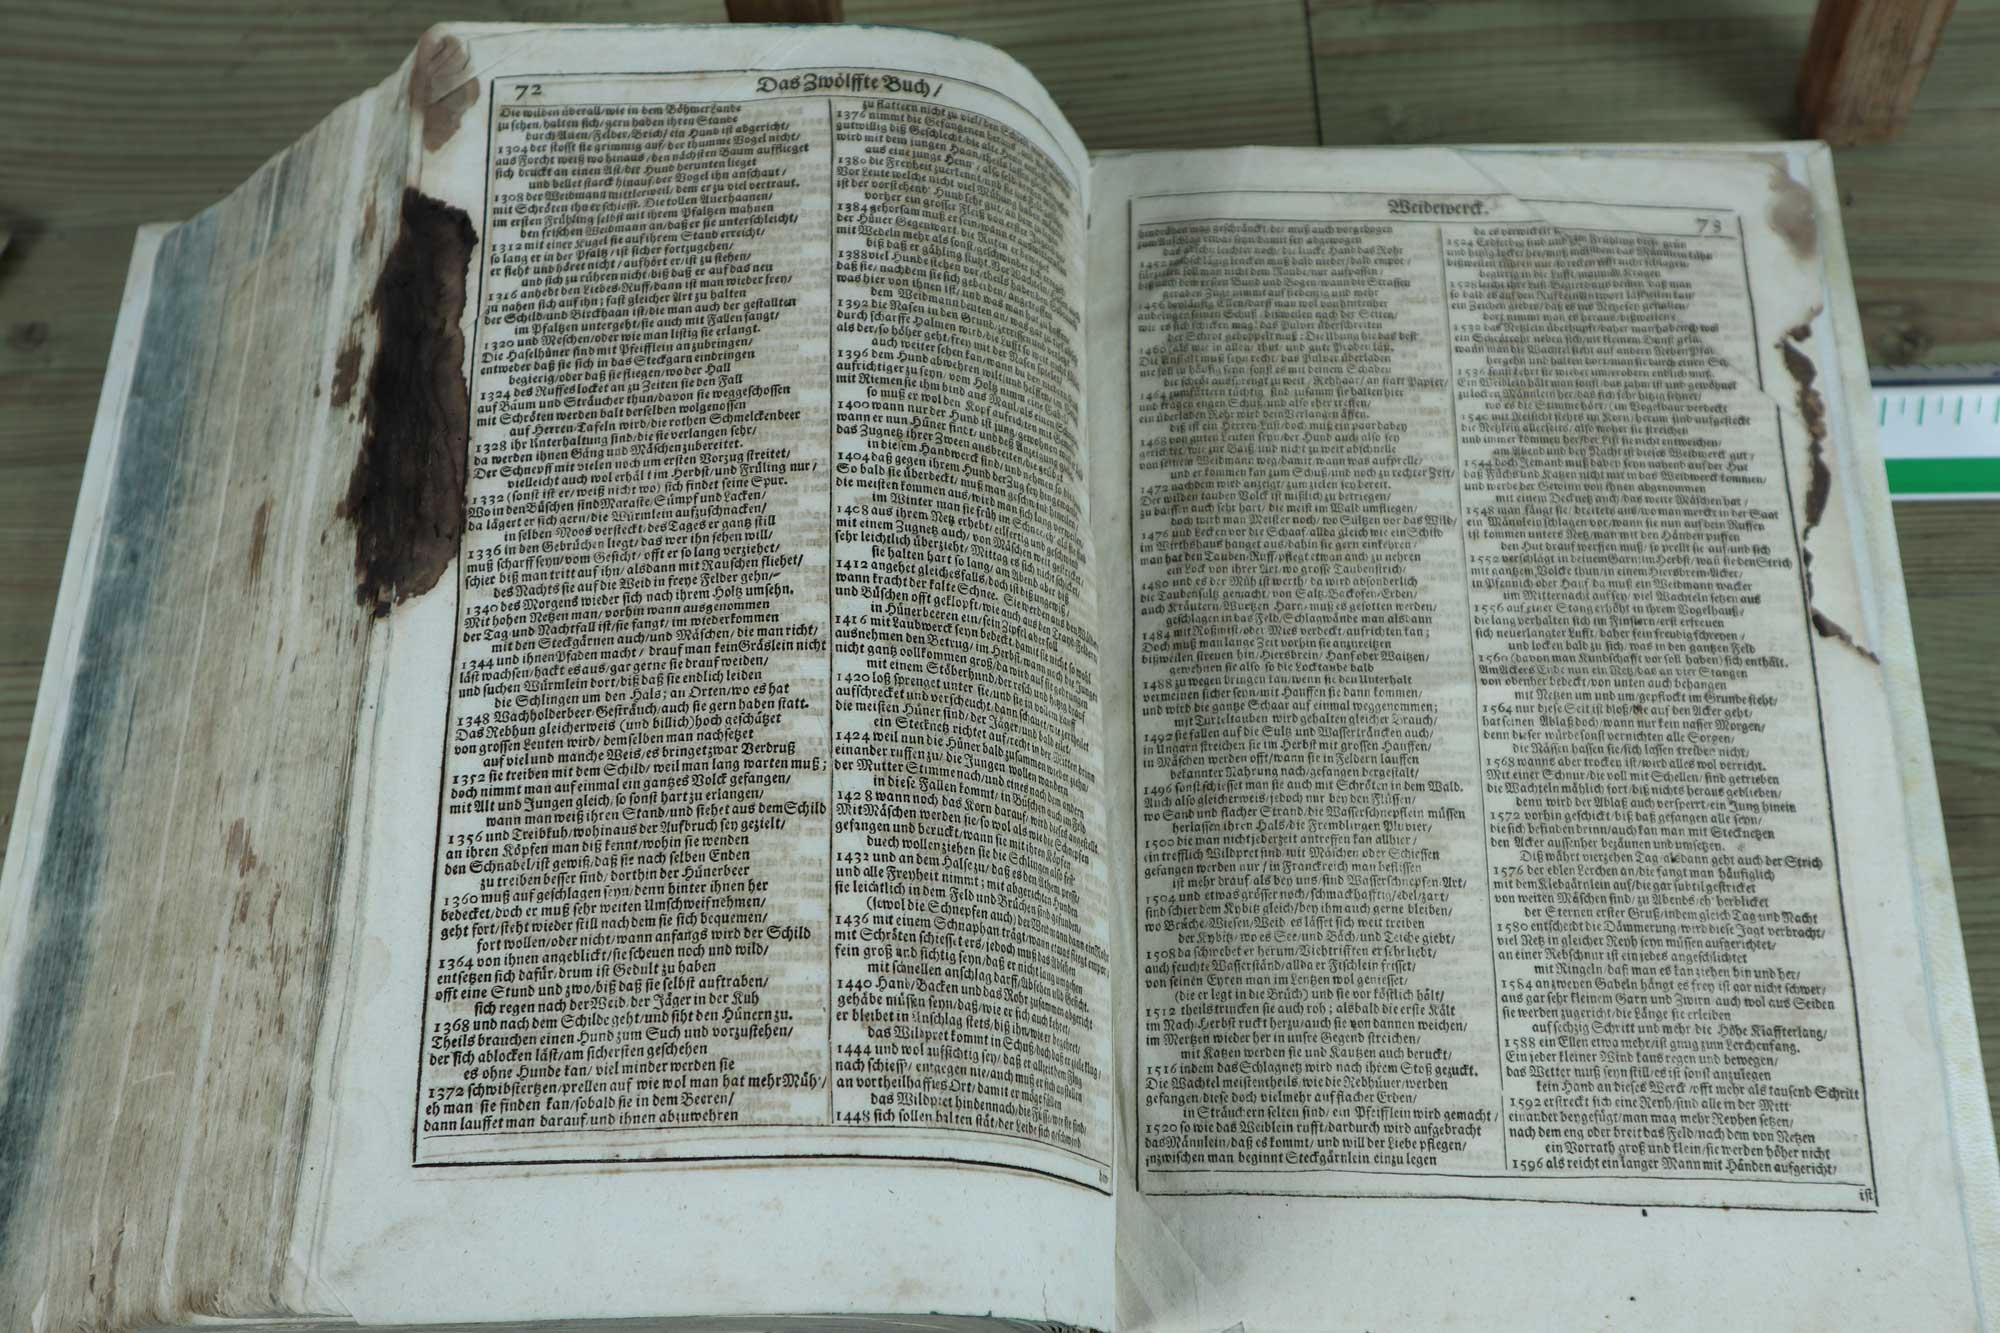 72
Das Zwölffte Buch/
Die wilden überall/wie in dem Böhmerlande
zu sehen/halten sich/gern haben ihren Stande
durch Auen/Felder/Brich/ein Hund ist abgericht/
1304 der stosst sie grimmig auf/der thumme Vogel nicht/
aus Forcht weiß wo hinaus/den nächsten Baum aufflieget
sich druckt an einen Ast/der Hund herunten lieget
und bellet starck hinauf/der Vogel ihn anschaut/
1308 der Weidmann mittlerweil/dem er zu viel vertraut.
mit Schröten ihn erschiesst. Die tollen Auerhaanen/
im ersten Frühling selbst mit ihrem Pfaltzen mahnen
den frischen Weidmann an/daß er sie unterschleicht/
1312 mit einer Kugel sie auf ihrem Stand erreicht/
so lang er in der Pfaltz/ist sicher fortzugehen/
er sieht und höret nicht/aufhört er/ist zu stehen/
und sich zu rühren nicht/biß daß er auf das neu
1316 anhebt den Liebes-Ruff/dann ist man wieder frey/
zu nahen sich auf ihn; fast gleicher Art zu halten
der Schild/und Birckhaan ist/die man auch der gestalten
im Pfaltzen untergeht/sie auch mit Fallen fangt/
1320 und Meschen/oder wie man listig sie erlangt.
Die Haselhüner sind mit Pfeifflein anzubringen/
entweder daß sie sich in das Steckgarn eindringen
begierig/oder daß sie fliegen/wo der Hall
1324 des Ruffes locket an zu Zeiten sie den Fall
auf Bäum und Sträucher thun/davon sie weggeschossen
mit Schröten werden balt derselben wolgenossen
auf Herren-Tafeln wird/die rothen Schmelckenbeer
1328 ihr Unterhaltung sind/die sie verlangen sehr/
da werden ihnen Gäng und Mäschen zubereitet.
Der Schnepff mit vielen noch um ersten Vorzug streitet/
vielleicht auch wol erhält im Herbst/und Früling nur/
1332 (sonst ist er/weiß nicht wo) sich findet seine Spur.
Wo in den Büschen sind Maraste/Sümpf und Lacken/
da lägert er sich gern/die Würmlein aufzuschnacken/
in selben Moos versteckt/des Tages er gantz still
1336 in den Gebrüchen liegt/das wer ihn sehen will/
muß scharff seyn/vom Gesicht/offt er so lang verziehet/
schier biß man tritt auf ihn/alsdann mit Rauschen fliehet/
des Nachts sie auf die Weid in freye Felder gehn/
1340 des Morgens wieder sich nach ihrem Holtz umsehn.
Mit hohen Netzen man/vorhin wann ausgenommen
der Tag und Nachtfall ist/sie fangt/im wiederkommen
mit den Steckgärnen auch/und Mäschen/die man richt/
1344 und ihnen Pfaden macht/drauf man kein Gräslein nicht
läst wachsen/hackt es aus/gar gerne sie drauf weiden/
und suchen Würmlein dort/biß daß sie endlich leiden
die Schlingen um den Hals; an Orten/wo es hat
1348 Wachholderbeer-Gesträuch/auch sie gern haben statt.
Das Rebhun gleicherweis (und billich) hoch geschätzet
von grossen Leuten wird/demselben man nachsetzet
auf viel und manche Weis/es bringet zwar Verdruß
1352 sie treiben mit dem Schild/weil man lang warten muß;
doch nimmt man auf einmal ein gantzes Volck gefangen/
mit Alt und Jungen gleich/so sonst hart zu erlangen/
wann man weiß ihren Stand/und siehet aus dem Schild
1356 und Treibkuh/wohinaus der Aufbruch sey gezielt/
an ihren Köpfen man diß kennt/wohin sie wenden
den Schnabel/ist gewiß/daß sie nach selben Enden
zu treiben besser sind/dorthin der Hünerbeer
1360 muß aufgeschlagen seyn/denn hinter ihnen her
bedecket/doch er muß sehr weiten Umschweif nehmen/
geht fort/steht wieder still nachdem sie sich bequemen/
fort wollen/oder nicht/wann anfangs wird der Schild
1364 von ihnen angeblickt/sie scheuen noch und wild/
entsetzen sich dafür/drum ist Gedult zu haben
offt eine Stund und zwo/biß daß sie selbst auftraben/
sich regen nach der Weid/der Jäger in der Kuh
1368 und nach dem Schilde geht/und siht den Hünern zu.
Theils brauchen einen Hund zum Such und vorzustehen/
der sich ablocken läst/am sichersten geschehen
es ohne Hunde kan/viel minder werden sie
1372 schwibstertzen/prellen auf wie wol man hat mehr Müh/
eh man sie finden kan/sobald sie in dem Beeren/
dann lauffet man darauf/und ihnen abzuwehren
zu flattern nicht zu viel/den
1376 nimmt die Gefangenen heraus
gutwillig diß Geschlecht/die alte Henn
wird mit dem jungen Haan/theils
aus eine junge Henn/
1380 die Freyheit zuerkennt/und sie
Vor Leute welche nicht viel Mühung haben
ist der vorstehend' Hund sehr gut/
vorher ein grosser Fleiß/wann er
1384 gehorsam muß er seyn/wann er
der Hüner Gegenwart/die Ruten er
mit Wedeln mehr als sonst/geschwinder sich
biß daß er gähling stutzt. Vor
1388 viel Hunde stehen vor/theils haben
daß sie/nachdem sie sich gebeiden/
was hier von ihnen ist/und was man
dem Weidmann deuten an/was gar
1392 die Nasen in den Grund/
durch scharffe Halmen wird/die Lufft
als der/so höher geht/frey mit der Nasen
auch weiter sehen kan/wann du
1396 dem Hund abwehren wilt/und
aufrichtiger zu seyn/vom Holtz nimm eine
mit Riemen sie ihm bind ans Maul/
so muß er wol den Kopf aufrichten
1400 wann nur der Hund ist jung/
wann er nun Hüner findt/und
das Zugnetz ihrer Zween ausbreiten/
in diesem Handwerck sind/und nehmen
1404 daß gegen ihrem Hund der Zug sey
So bald sie überdeckt/muß man geschwind
die meisten kommen aus/wird
im Winter man sie früh im Schnee
1408 aus ihrem Netz erhebt/eilfertig und
mit einem Zugnetz auch/von Mäschen weit gestricket/
sehr leichtlich überzieht/Mittag es sich nicht schicket/
sie halten hart so lang/am Abend aber
1412 angehet gleichesfalls/doch ist
wann kracht der kalte Schnee. Sie werden aus den Wälder
und Büschen offt geklopft/wie auch aus den Trapp-Feldern
in Hünerbeeren ein/sein Zipfel aber soll
1416 mit Laubwerck seyn bedeckt/damit sie nicht so wohl
ausnehmen den Betrug/im Herbst/wann
nicht gantz vollkommen groß/da wird auf sie
mit einem Stöberhund/der resch und hitzig
1420 loß sprenget unter sie/und sie in vollem Lauff
aufschrecket und verscheucht/dann schauet/wie zertheilet
die meisten Hüner sind/der Jäger/und bald eilet/
ein Stecknetz richtet auf/recht in der Mitten drinn
1424 weil nun die Hüner bald zusammen wieder ziehn/
einander ruffen zu/die Jungen wollen wandern
der Mutter Stimme nach/und eines nach dem andern
in diese Fallen kommt/in Büschen auch im Feld
1428 wann noch das Korn darauf/wird dieses angestellt
Mit Mäschen werden sie/so wol als wie die Schnepfen
gefangen und beruckt/wann sie mit ihren Köpfen
duech wollen ziehen sie die Schlingen also fest
1432 und an dem Halse zu/daß es den Athem presst/
und alle Freyheit nimmt; mit abgerichten Hunden
sie leichtlich in dem Feld und Brüchen sind gefunden/
(iewol die Schnepfen auch) der Weidmann dann ein Rohr
1436 mit einem Schnaphan trägt/wann etwas fliegt empor/
mit Schröten schiesset ers/jedoch muß das Absehen
fein groß und sichtig seyn/daß er nicht lang umgehen
mit schnellen anschlag darff/Absehen und Gesicht.
1440 Hand/Backen und das Rohr zusammen abgericht
gehäbe müssen seyn/daß/wie er sich auch kehret/
er bleibet in Anschlag stets/biß ihm/wie er begehret/
das Wildpret kommt in Schuß/doch daß er ziele klug/
1444 und wol aufsichtig sey/daß er allzeit dem Flug
nach schiess/entgegen nie/auch muß er sich anstellen
an vortheilhafftes Ort/damit er möge fällen
das Wildpret hindennach/die Füsse/wie sie sind/
1448 sich sollen halten stät/der Leibe sich geschwind
hin-
Weidewerck.
73
hindrehen was geschränckt/der muß auch vorgebogen
zum Anschlag etwas seyn damit sey abgewogen
das geschi leichter noch/die lincke Hand das Rohr
1452
fürzielen soll man nicht dem Raube/nur aufpassen/
biß auch dem ersten Bund und Bogen/wann die Strassen
geraden Zuge nimmt auf siebentzig und mehr
1456 beyläufig Ellen/darff man wol von hintenher
anbringen seinen Schuß/bißweilen nach der Seiten/
wie es sich schicken mag; das Pulver überschreiten
der Schrot gedoppelt muß: Die Ubung hie das best
1460 als wie in allen/thut/und gute Proben läst.
Die Anstalt muß seyn recht/das Pulver überladen
nie soll zu häufig seyn/sonst es mit deinem Schaden
die schröt aussprengt zu weit/Rehhaar/an statt Papier/
1464 zumfüttern tüchtig sind/zusamm sie halten hier
und tragen engen Schuß/und also ehr treffen/
ein überladen Rohr wird dein Verlangen äffen.
diß ist ein Herren-Lust/doch muß ein paar dabey
1468 von guten Leuten seyn/der Hund auch also sey
gerichtet/wie zur Baiß/und nicht zu weit abschnelle
von seinem Weidmann weg/damit/wann was aufprelle/
und er kommen kan zum Schuß/und noch zu rechter Zeit/
1472 nachdem wird anzeigt/zum zielen sey bereit.
Der wilden tauben Volck ist mißlich zu betriegen/
zu baissen auch sehr hart/die meist im Wald umfliegen/
doch wird man Meister noch/wo Sultzen vor das Wild/
1476 und Lecken vor die Schaaf/allda gleich wie ein Schild
im Wirthshaus hanget aus/dahin sie gern einkehren/
man hat den Tauben-Ruff/pflegt etwan auch zu nehren
ein Lock von ihrer Art/wo grosse Taubenstrich/
1480 und es der Müh ist werth/da wird absonderlich
die Taubensültz gemacht/von Saltz/Backofen/Erden/
auch Kräutern/Wurtzen/Harr/muß es gesotten werden/
geschlagen in das Feld/Schlagwände man alsdann
1484 mit Roßmist/oder Mies verdeckt/aufrichten kan;
Doch muß man lange Zeit vorhin sie anzureitzen
bißweilen streuen hin/Hiersbrein/Hanf oder Waitzen/
gewehnen sie also/so die Locktaube bald
1488 zu wegen bringen kan/wenn sie den Unterhalt
vermeinen sicher seyn/mit Hauffen sie dann kommen/
und wird die gantze Schaar auf einmal weggenommen;
mit Turteltauben wird gehalten gleicher Brauch/
1492 sie fallen auf die Sultz und Wassertäncken auch/
in Ungarn streichen sie im Herbst mit grossen Hauffen/
in Mäschen werden offt/wann sie in Feldern lauffen
bekannter Nahrung nach/gefangen dergestalt/
1496 sonst schiesset man sie auch mit Schröten in dem Wald.
Auch also gleicherweis/jedoch nur bey den Flüssen/
wo Sand und flacher Strand/die Wasserschnepflein müssen
herlassen ihren Hals/die Fremblingen Pluvier/
1500 die man nicht jederzeit antreffen kan allhier/
ein trefflich Wildpret sind/mit Mäschen oder Schiessen
gefangen werden nur/in Franckreich man beflissen
ist mehr drauf als bey uns/sind Wasserschnepfen-Art/
1504 und etwas grösser noch/schmackhafftig/edel/zart/
sind schier dem Kybitz gleich/bey ihm auch gerne bleiben/
wo Brüche/Wiesen/Weid/es lässet sich weit treiben
der Kybitz/wo es See/und Bäch/und Teiche giebt/
1508 da schwebet er herum/Viehtrifften er sehr liebt/
auch feuchte Wasserständ/allda er Fischlein frisset/
von seinen Eyren man im Lentzen wol geniesset/
(die er legt in die Brüch) und sie vor köstlich hält/
1512 theils trincken sie auch roh; alsbald die erste Kält
im Nach-Herbst ruckt herzu/auch sie von dannen weichen/
im Mertzen wieder her in unsre Gegend streichen/
mit Katzen werden sie und Kautzen auch beruckt/
1516 indem das Schlagnetz wird nach ihrem Stoß gezuckt.
Die Wachtel meistentheils/wie die Rebhüner/werden
gefangen/diese doch vielmehr auf flacher Erden/
in Sträuchern selten sind/ein Pfeifflein wird gemacht/
1520 so wie das Weiblein rufft/dardurch wird aufgebracht
das Männlein/daß es kommt/und will der Liebe pflegen/
inzwischen man beginnt Steckgärnlein einzulegen
da es verwickelt
1524 Erdfärbig sind und im Frühling diese grün
und hitzig locket her/muß man als den das Männlein kühn
bißweilen rühren nur/so recken
begierig in die Lufft/man muß
1528 leicht ihre Lust-Begierd aus denen/daß man
so bald es auf den Ruff ein Antwort läst seyn kan/
ein Zeichen/disder/daß es ins Netzlein gehet/
dort nimmt man es heraus/bißweilen
1532 das Netzlein überhupft/daher man haben
ein Schrötrohr neben sich/mit kleinem Dunst gelä
wann man die Wachtel sieht auf andern Neben-Pfat
hergehn und halten dort/man sie durch einen Sch
1536 sonst kehrt sie wieder um/erobern endlich muß.
Ein Weiblein hält man sonst/das zahm ist und gewöhnet
zu locken Männlein her/das sich sehr hitzig sehnet/
wo es die Stimme hört/im Vogelhaus verdeckt
1540 mit Reissicht stehet im Kreis herum sind aufgesteckt
die Netzlein allerseits/also woher sie streichen
und immer kommen her/der List sie nicht entweichen/
am Abend und bey Nacht ist dieses Weidwerck gut/
1544 doch Jemand muß dabey seyn nahend auf der Hut
daß Füchs und Katzen nicht mit in das Weidwerck kommen/
und werde der Gewinn von ihnen abgenommen
mit einem Decknetz auch/das weite Mäschen hat/
1548 man fängt sie/breitets aus/wo man merckt in der Saat
ein Männlein schlagen vor/wann sie nun auf dein Ruffen
ist kommen unters Netz/man mit den Händen puffen
den Hut drauf werffen muß/so prellt sie auf/und sich
1552 verschlägt in deinem Garn; im Herbst/wan sie den Strich
mit gantzem Volcke than/in einem Hiersbrein-Acker/
in Pfennich oder Hauf da muß ein Weidmann wacker
im Mitternacht auf sey/viel Wachteln setzen aus
1556 auf einer Stang erhöht in ihrem Vogelhauß/
die lang verhalten sich im Finstern/erst erfreuen
sich neuerlangter Lufft/daher sein freudig schreyen/
und locken bald zu sich/was in den gantzen Feld
1560 (davon man Kundschafft vor soll haben) sich enthält.
Am Ackers Ende nun ein Netz/das an vier Stangen
von obenher bedeckt/von unten auch behangen
mit Netzen um und um/gepflockt im Grunde steht/
1564 nur diese Seit ist bloß/die auf den Acker geht/
hat seinen Ablaß doch/wann nur kein nasser Morgen/
denn dieser würde sonst vernichten alle Sorgen/
die Nässen hassen sie/sich lassen treiben nicht/
1568 wanns aber trocken ist/wird alles wol verricht.
Mit einer Schnur/die voll mit Schellen/sind getrieben
die Wachteln mählich fort/biß nichts heraus geblieben/
denn wird der Ablaß auch versperrt/ein Jung hinein
1572 vorhin geschickt/biß daß gefangen alle seyn/
die sich befinden drinn/auch kan man mit Stecknetzen
den Acker aussenher bezäunen und umsetzen.
Diß währt vierzehen Tag/alsdann geht auch der Strich
1576 der edlen Lerchen an/die fangt man häufiglich
mit dem Klebgärnlein auf/die gar subtil gestricket
von weiten Mäschen sind/zu Abends/eh' verblicket
der Sternen erster Gruß/indem gleich Tag und Nacht
1580 entscheidt die Dämmerung/wird diese Jagt verbracht/
viel Netz in gleicher Reyh seyn müssen aufgerichtet/
an einer Rebschnur ist ein jedes angeschlichtet
mit Ringeln/daß man es kan ziehen hin und her/
1584 an zweyen Gabeln hängt es frey/ist gar nicht schwer/
aus gar sehr kleinem Garn und Zwirn auch wol aus Seiden
sie werden zugericht/die Länge sie erleiden
auf sechzig Schritt und mehr die Höhe Klaffterlang/
1588 ein Ellen etwa mehr/ist gnug zum Lerchenfang.
Ein jeder kleiner Wind kans regen und bewegen/
das Wetter muß seyn still/es ist sonst anzulegen
kein Hand an dieses Werck/offt mehr als tausend Schritt
1592 erstreckt sich eine Reyh/sind alle in der Mitt
einander beygefügt/man mag mehr Reyhen setzen/
nach dem eng oder breit das Feld/nach dem von Netzen
ein Vorrath groß und klein/sie werden höher nicht
1596 als reicht ein langer Mann mit Händen aufgericht/
ist